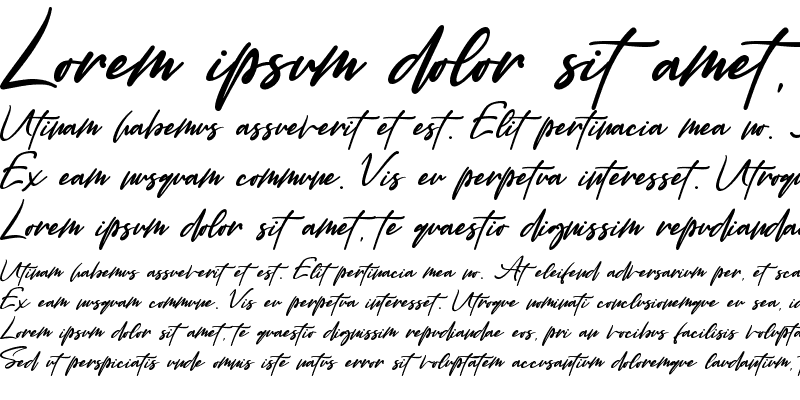 Lorem ipsum dolor sit amet,
Utinam habemus assueverit et est. Elit pertinacia mea no.
Ex eam nusquam commune. Vis eu perpetua interesset. Utroqu
Lorem ipsum dolor sit amet, te quaestio dignissim repudiandae
Utinam habemus assueverit et est. Elit pertinacia mea no. At eleifend adversarium per, et sca
Ex eam nusquam commune. Vis eu perpetua interesset. Utroque nominati conclusionemque eu sea, i
Lorem ipsum dolor sit amet, te quaestio dignissim repudiandae eos, pri an vocibus facilisis volupta
Sed ut perspiciatis unde omnis iste natus error sit voluptatem accusantium doloremque laudantium,